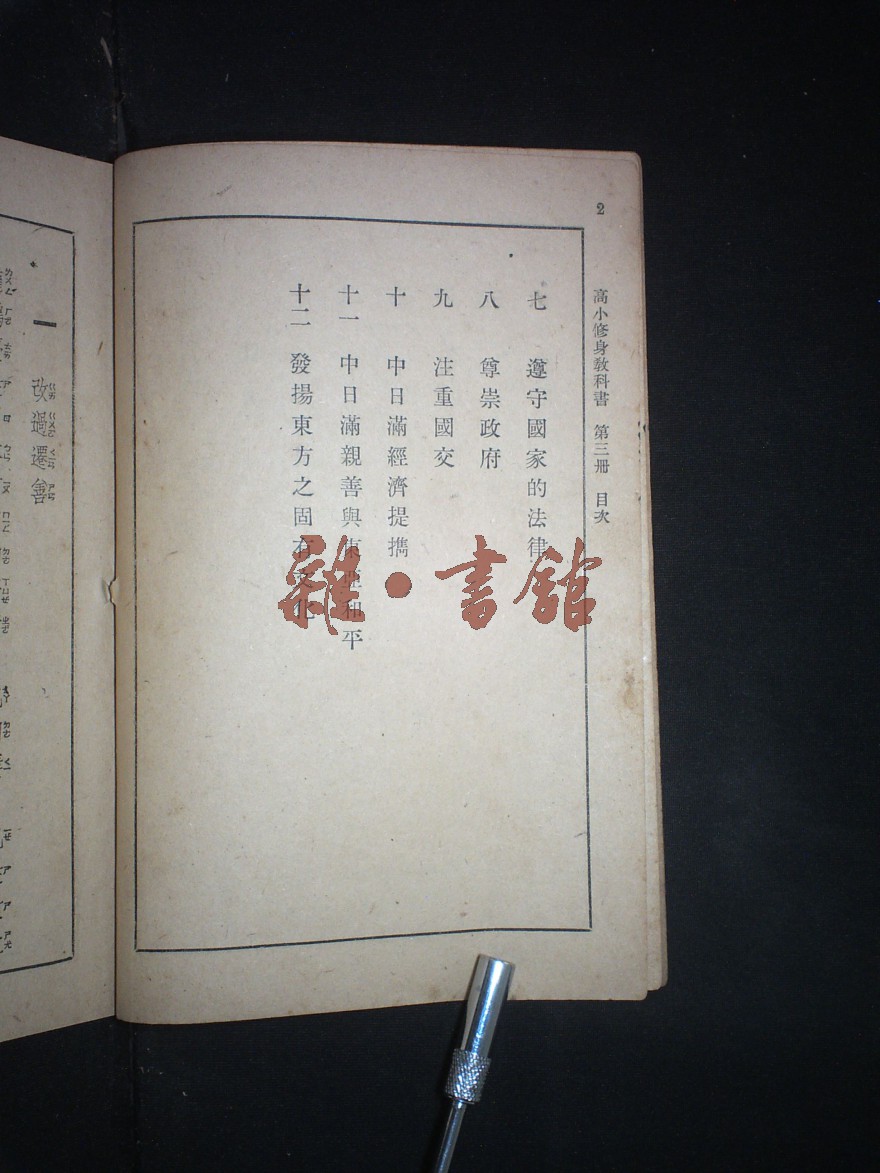 2
高小修身教科書 第三冊 目次
七 遵守國家的法律
八 尊崇政府
九 注重國交
十 中日滿經濟提攜
十一 中日滿親善與東亞和平
十二 發揚東方之固有文化
雜·書館
一 改過遷善